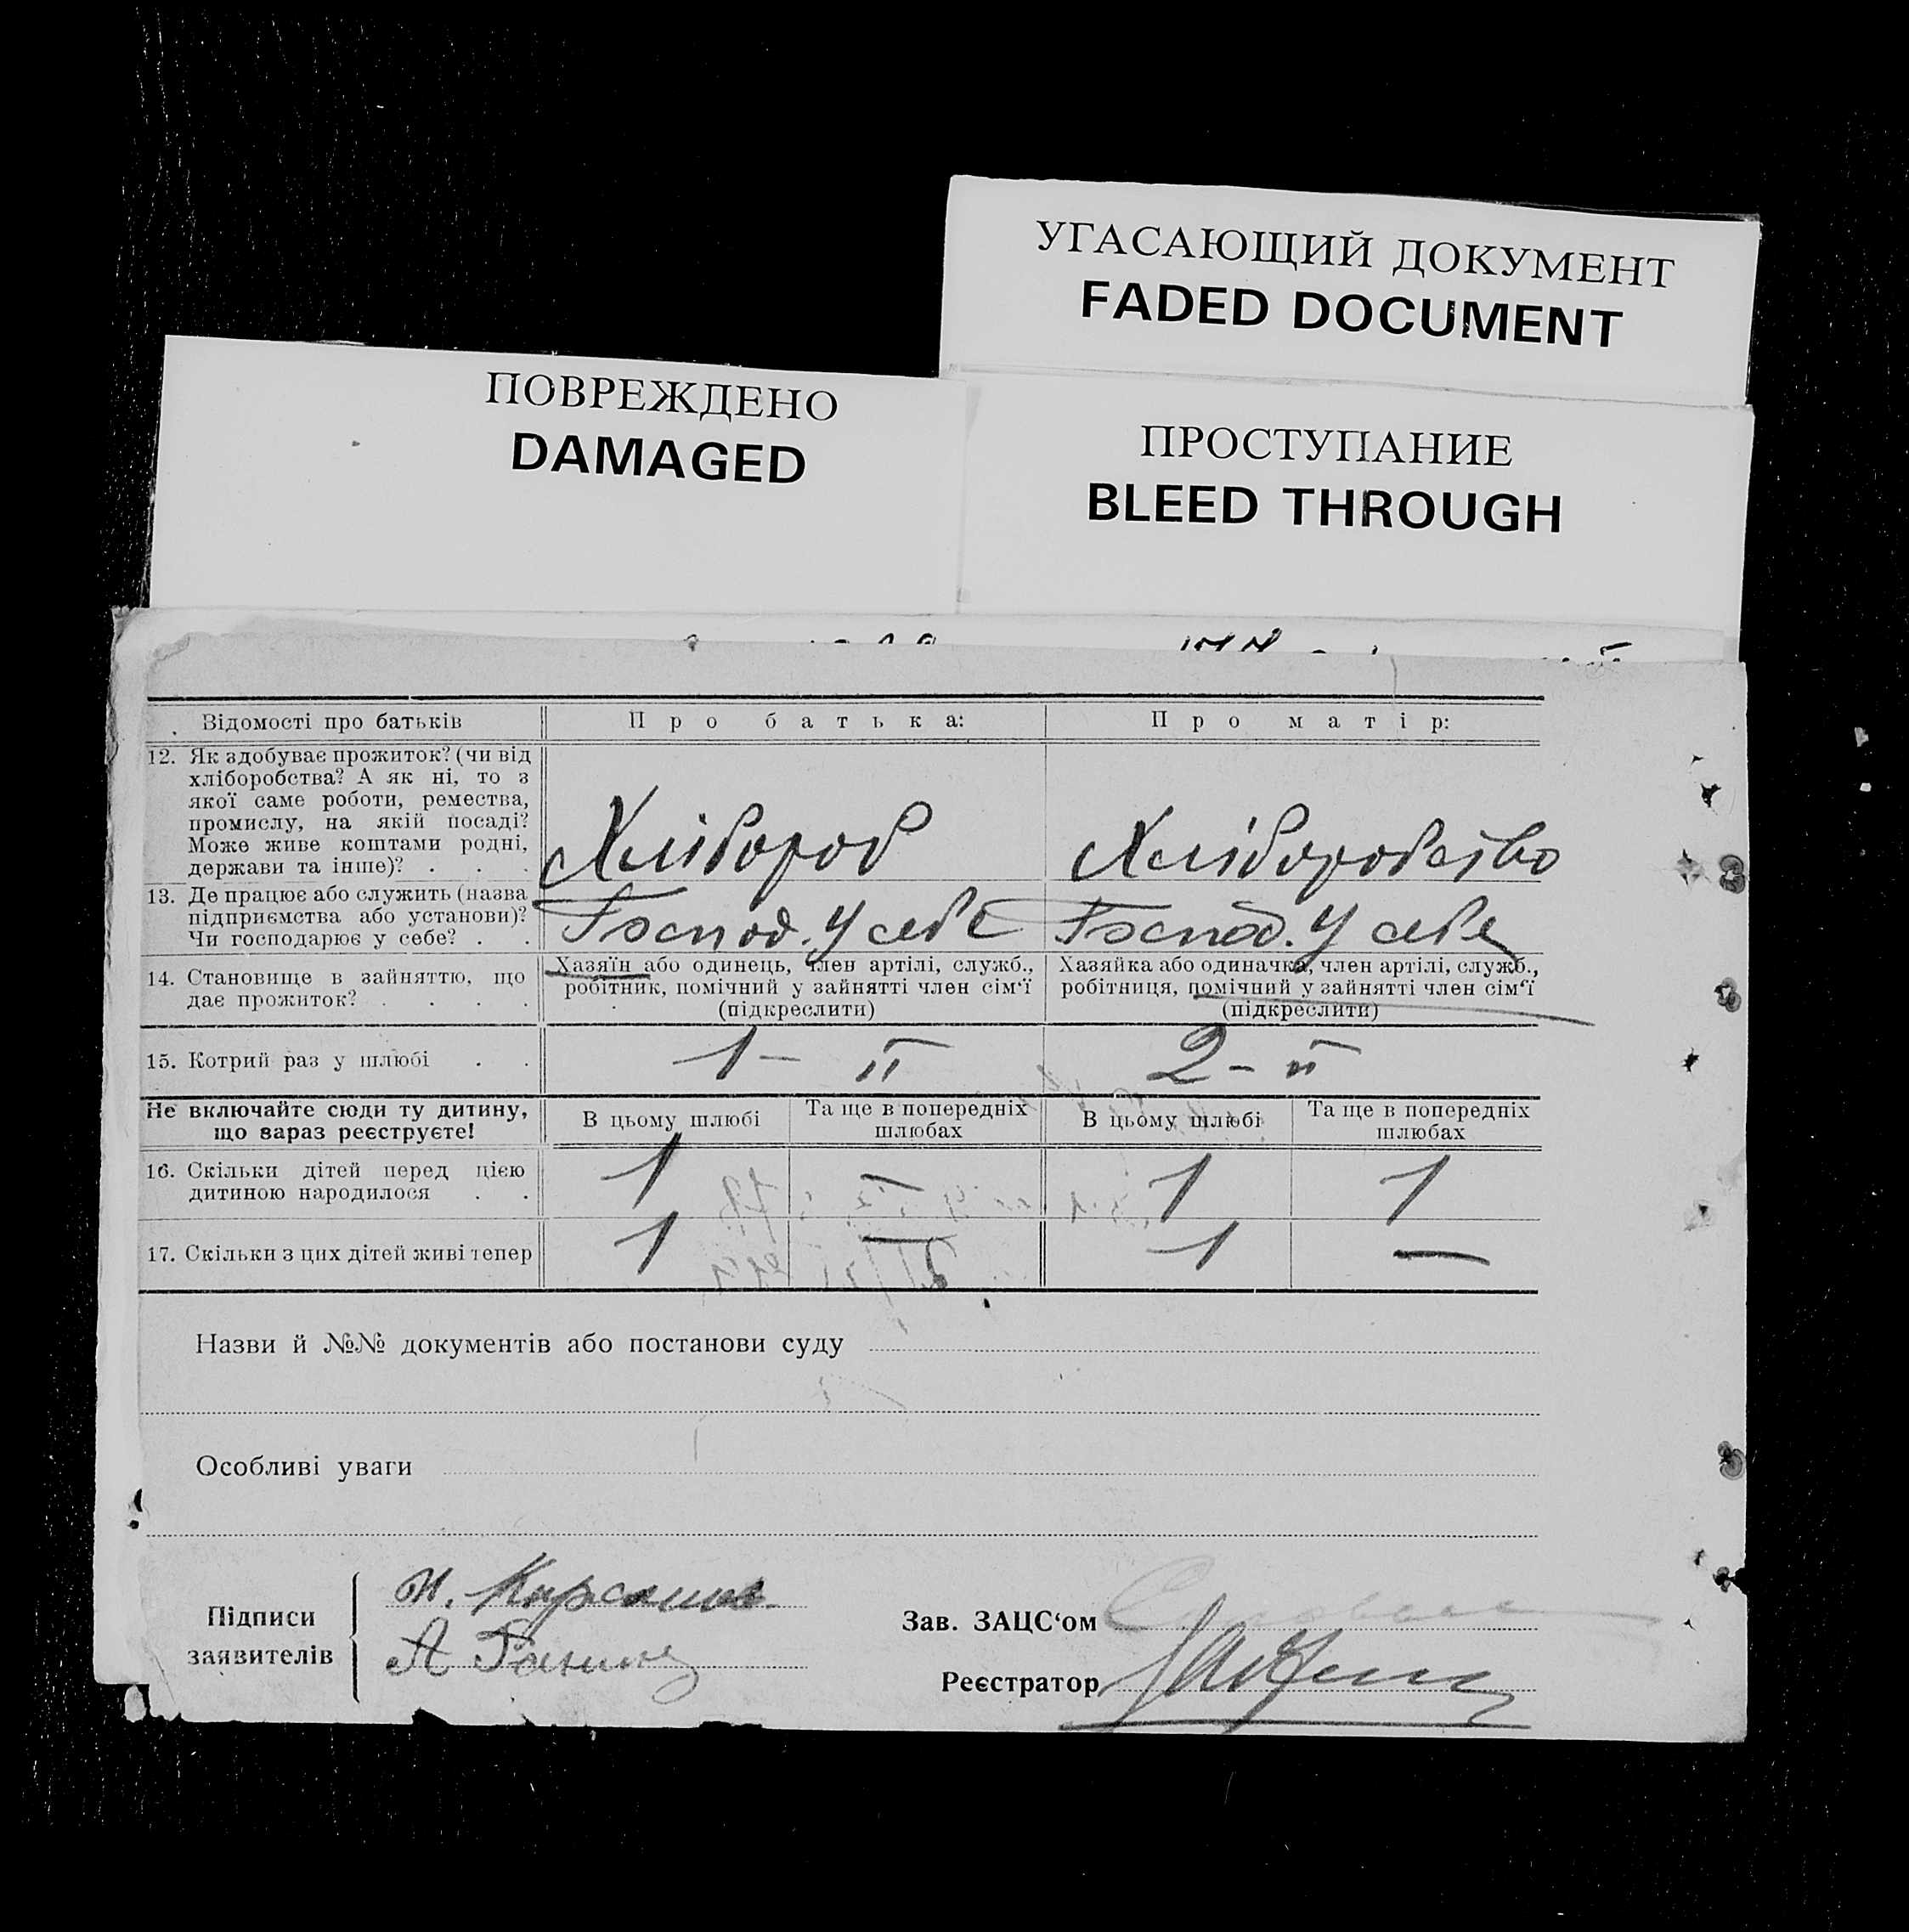 УГАСАЮЩИЙ ДОКУМЕНТ
FADED DOCUMENT
ПОВРЕЖДЕНО
DAMAGED
ПРОСТУПАНИЕ
BLEED THROUGH
Відомості про батьків
Про батька:
Про матір:
12. Як здобуває прожиток? (чи від
хліборобства? А як ні, то з
якої саме роботи, ремества,
промислу, на якій посаді?
Може живе коштами родні,
держави та інше)? . . .
Хлібороб
Хліборобство
13. Де працює або служить (назва
підприємства або установи)?
Чи господарює у себе? . .
Господ. у себе
Господ. у себе
14. Становище в зайняттю, що
дає прожиток? . . . .
Хазяїн або одинець, член артілі, служб.,
робітник, помічний у зайнятті член сім‘ї
(підкреслити)
Хазяйка або одиначка, член артілі, служб.,
робітниця, помічний у зайнятті член сім‘ї
(підкреслити)
15. Котрий раз у шлюбі . .
1-й
2-й
Не включайте сюди ту дитину,
що зараз реєструєте!
В цьому шлюбі
Та ще в попередніх
шлюбах
В цьому шлюбі
Та ще в попередніх
шлюбах
16. Скільки дітей перед цією
дитиною народилося . .
1 — 1 1
17. Скільки з цих дітей живі тепер
1 — 1 —
Назви й №№ документів або постанови суду
Особливі уваги
Підписи
заявителів
Зав. ЗАЦС‘ом
Реєстратор